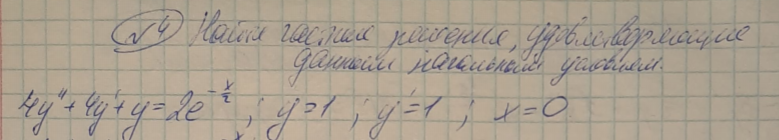 №4 Найти частные решения, удовлетворяющие
данным начальным условиям.
4y'' + 4y' + y = 2e^{-x/2} ; y=1 ; y'=1 ; x=0